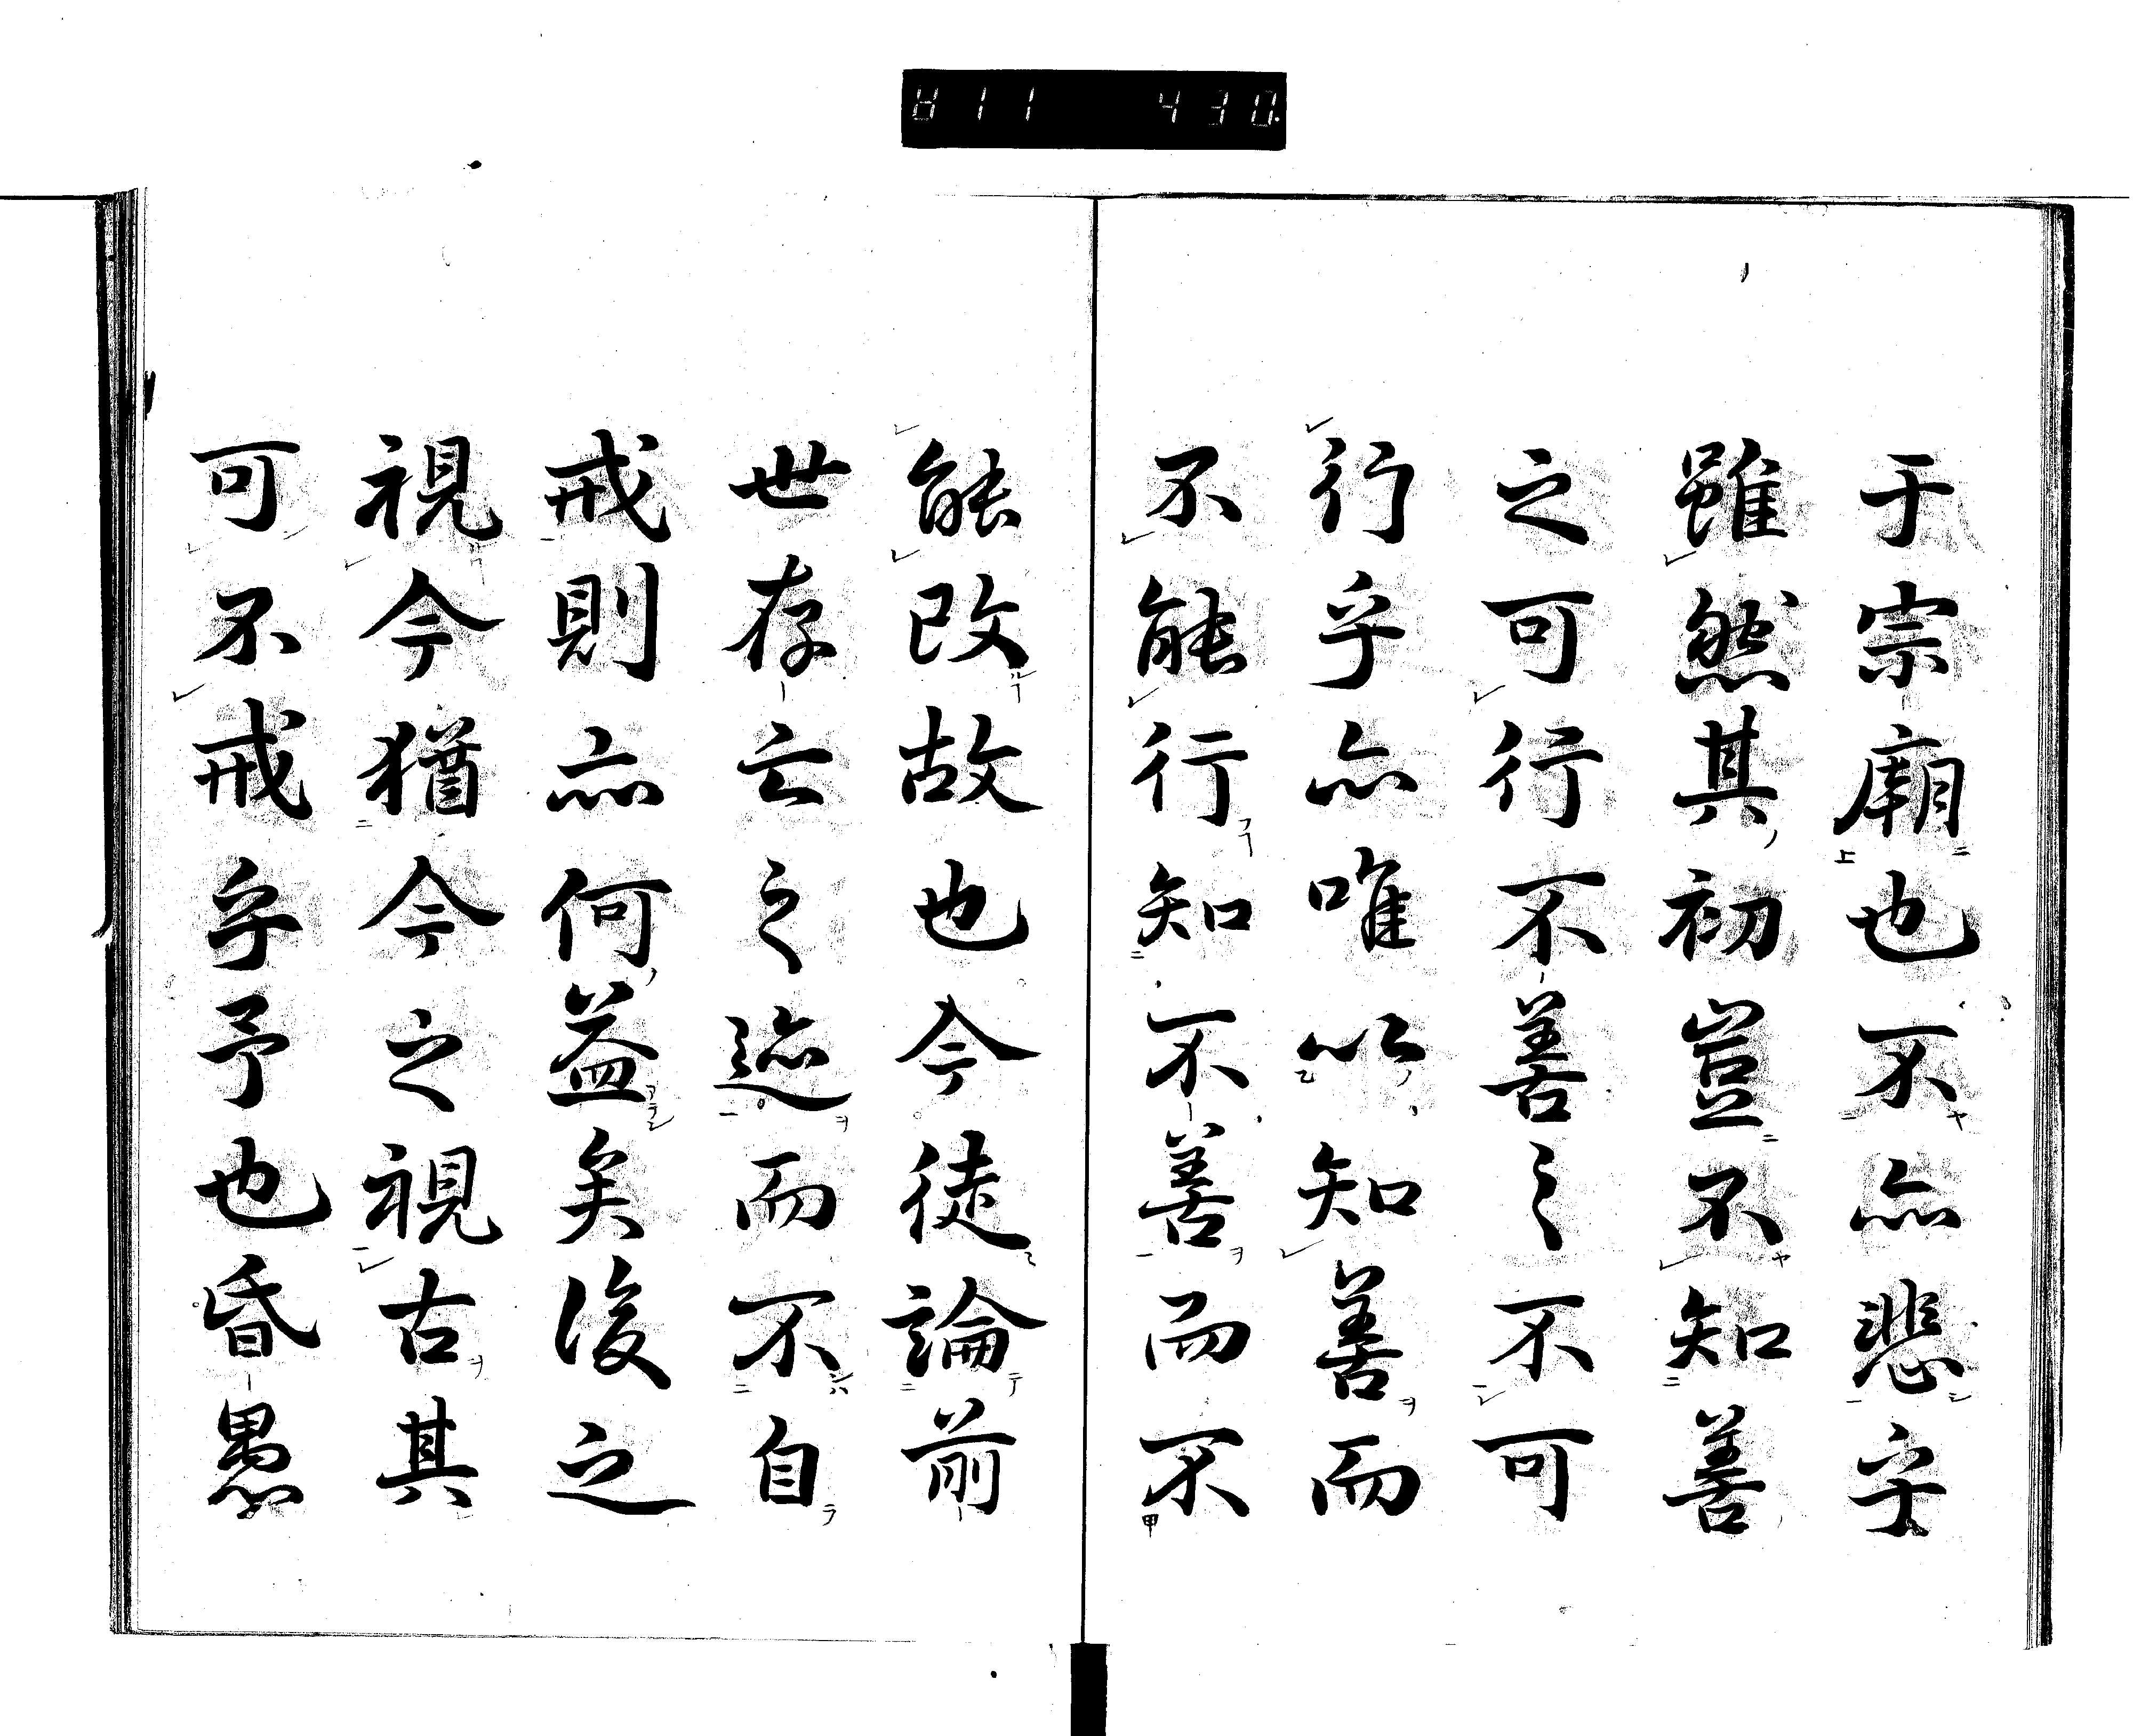 于宗廟也不亦悲乎
雖然其初豈不知善
之可行不善之不可
行乎亦唯以知善而
不能行知不善而不
能改故也今徒論前
世存亡之迹而不自
戒則亦何益矣後之
視今猶今之視古其
可不戒乎予也昏愚